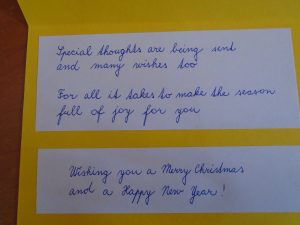 Special thoughts are being sent
and many wishes too
For all it takes to make the season
full of joy for you
Wishing you a Merry Christmas
and a Happy New Year!